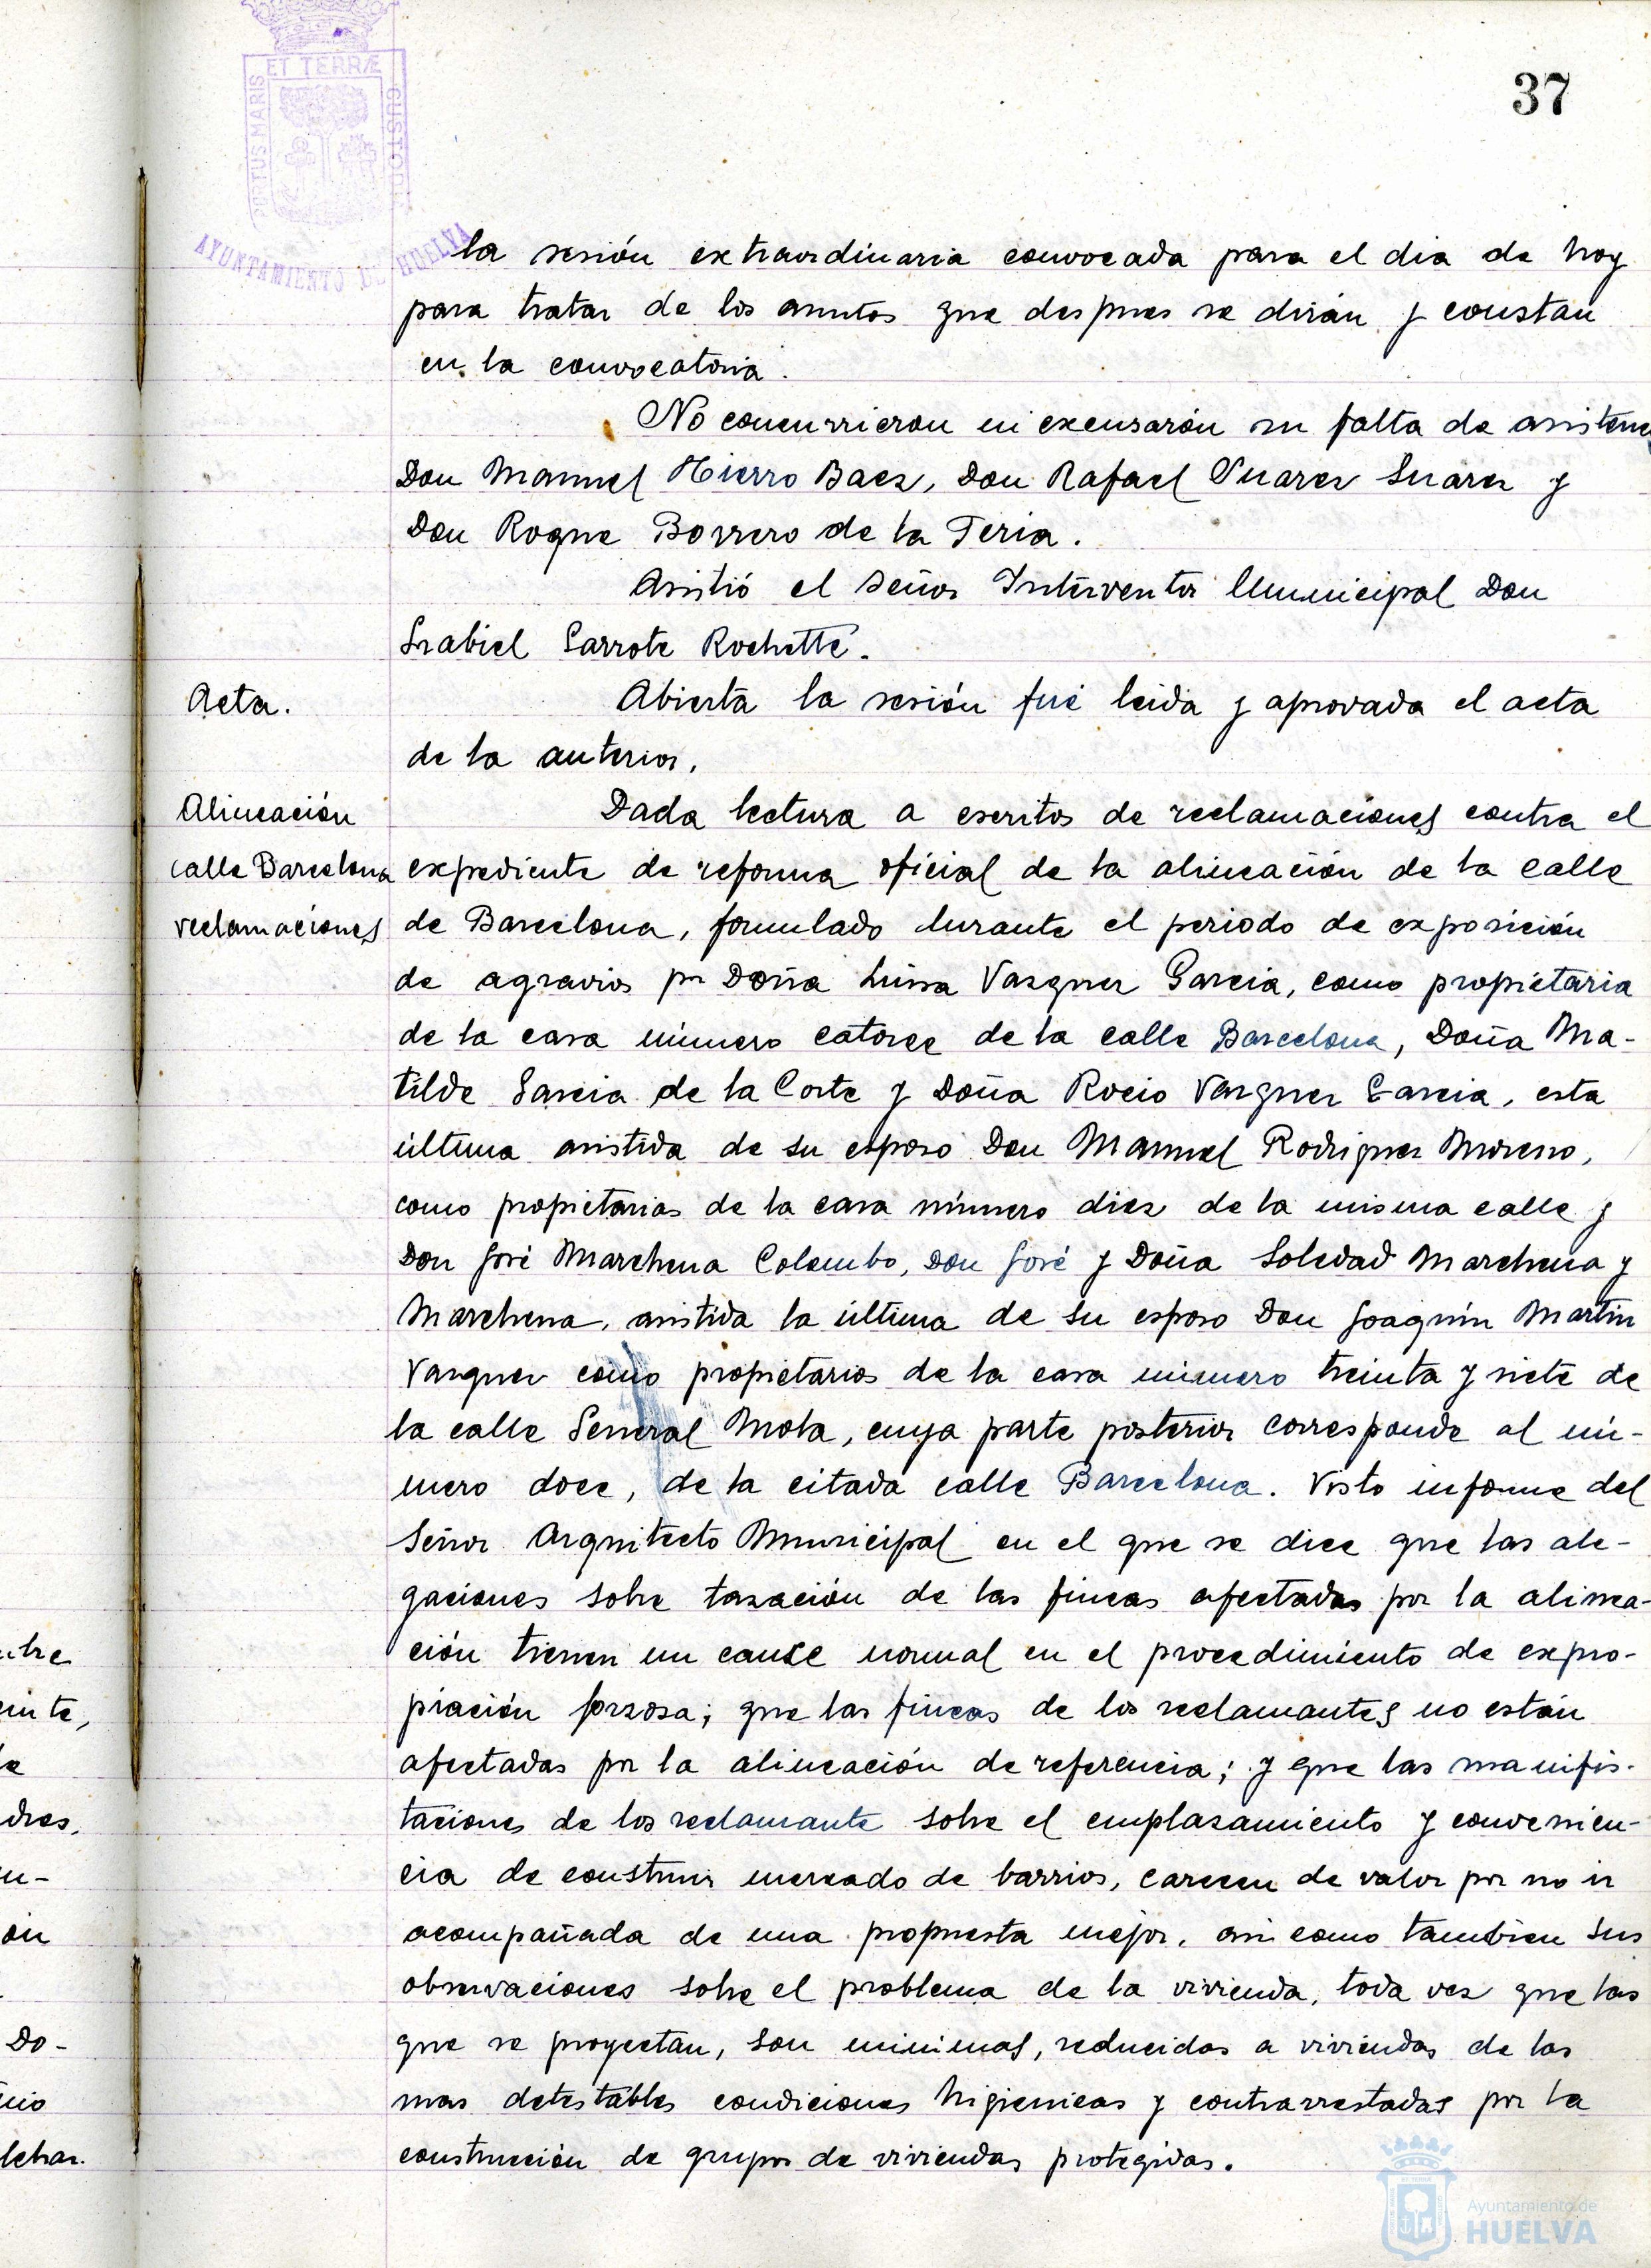 37
ET TERRÆ
PORTUS MARIS
CUSTODI
AYUNTAMIENTO DE HUELVA
la sesión extraordinaria convocada para el dia de hoy
para tratar de los asuntos que despues se dirán y constan
en la convocatoria.
No concurrieron ni excusarón su falta de asistenc
Don Manuel Hierro Baez, Don Rafael Suarez Suarez y
Don Roque Borrero de la Feria.
Asistió el Señor Interventor Municipal Don
Grabiel Garrote Rochette.
Acta.
Abierta la sesión fué leida y aprovada el acta
de la anterior.
Alineación
calle Barcelona
reclamaciones
Dada lectura a escritos de reclamaciones contra el
expediente de reforma oficial de la alineación de la calle
de Barcelona, formulado durante el periodo de exposición
de agravios por Doña Luisa Vazquez Garcia, como propietaria
de la casa número catorce de la calle Barcelona, Doña Ma-
tilde Garcia de la Corte y Doña Rocio Vazquez Garcia, esta
última asistida de su esposo Don Manuel Rodriguez Moreno,
como propietarias de la casa número diez de la misma calle y
Don José Marchena Colombo, Don José y Doña Soledad Marchena y
Marchena, asistida la última de su esposo Don Joaquín Martin
Vazquez como propietarios de la casa número treinta y siete de
la calle General Mola, cuya parte posterior corresponde al nú-
mero doce, de la citada calle Barcelona. Visto informe del
Señor Arquitecto Municipal en el que se dice que las ale-
gaciones sobre tasación de las fincas afectadas por la alinea-
ción tienen un cause normal en el procedimiento de expro-
piación forzosa; que las fincas de los reclamantes no están
afectadas por la alineación de referencia; y que las manifes-
taciones de los reclamante sobre el emplazamiento y convenien-
cia de construir mercado de barrios, carecen de valor por no ir
acompañada de una propuesta mejor, asi como tambien sus
observaciones sobre el problema de la vivienda, toda vez que las
que se proyectan, son minimas, reducidas a viviendas de las
mas detestables condiciones higienicas y contrarrestadas por la
construcción de grupos de viviendas protegidas.
Ayuntamiento de
HUELVA